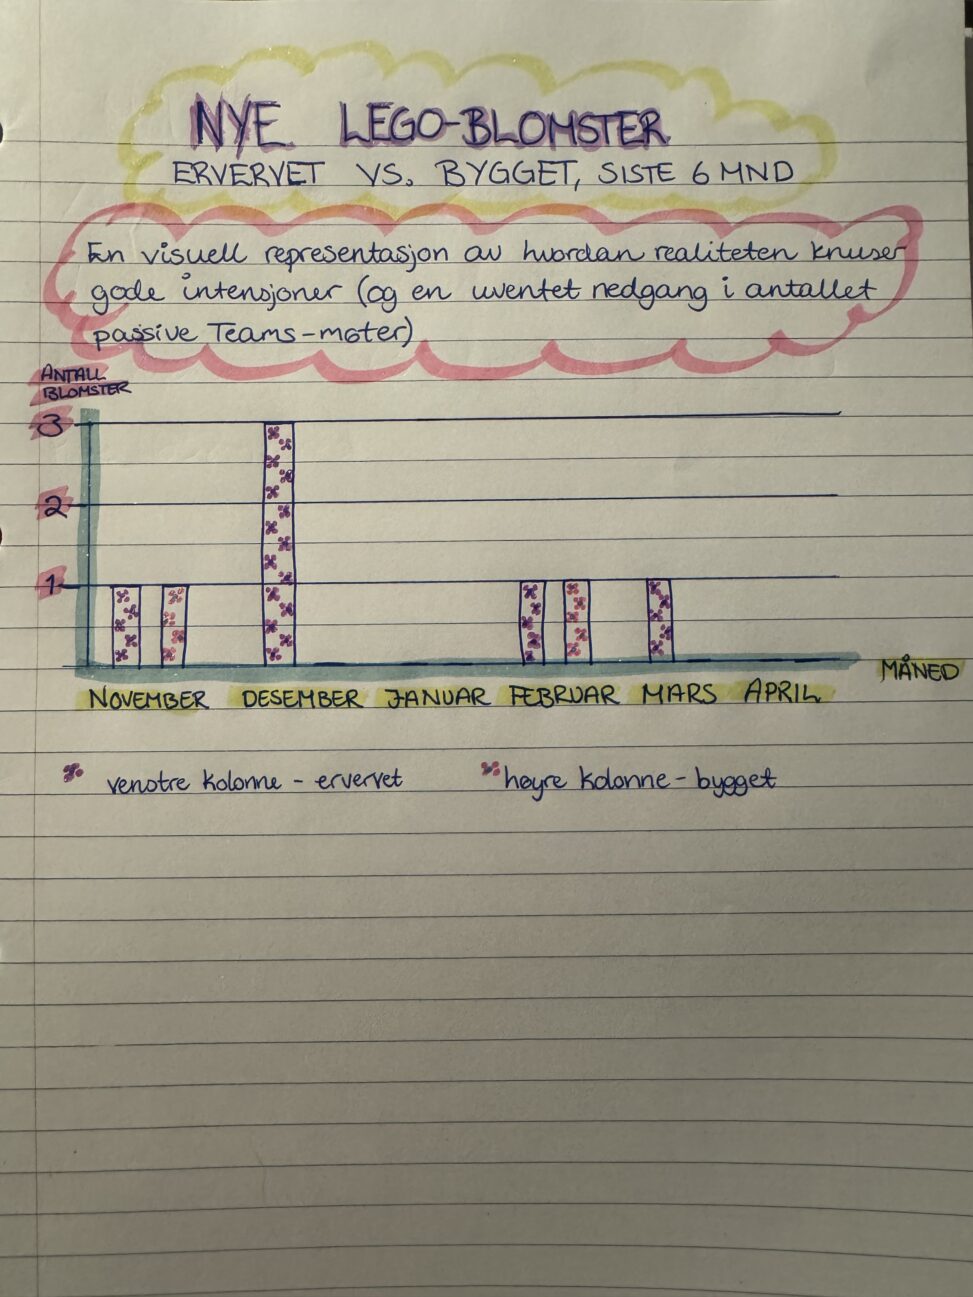 NYE LEGO-BLOMSTER
ERVERVET VS. BYGGET, SISTE 6 MND
En visuell representasjon av hvordan realiteten knuser
gode intensjoner (og en uventet nedgang i antallet
passive Teams-møter)
ANTALL
BLOMSTER
3
2
1
MÅNED
NOVEMBER DESEMBER JANUAR FEBRUAR MARS APRIL
venstre kolonne - ervervet
høyre kolonne - bygget